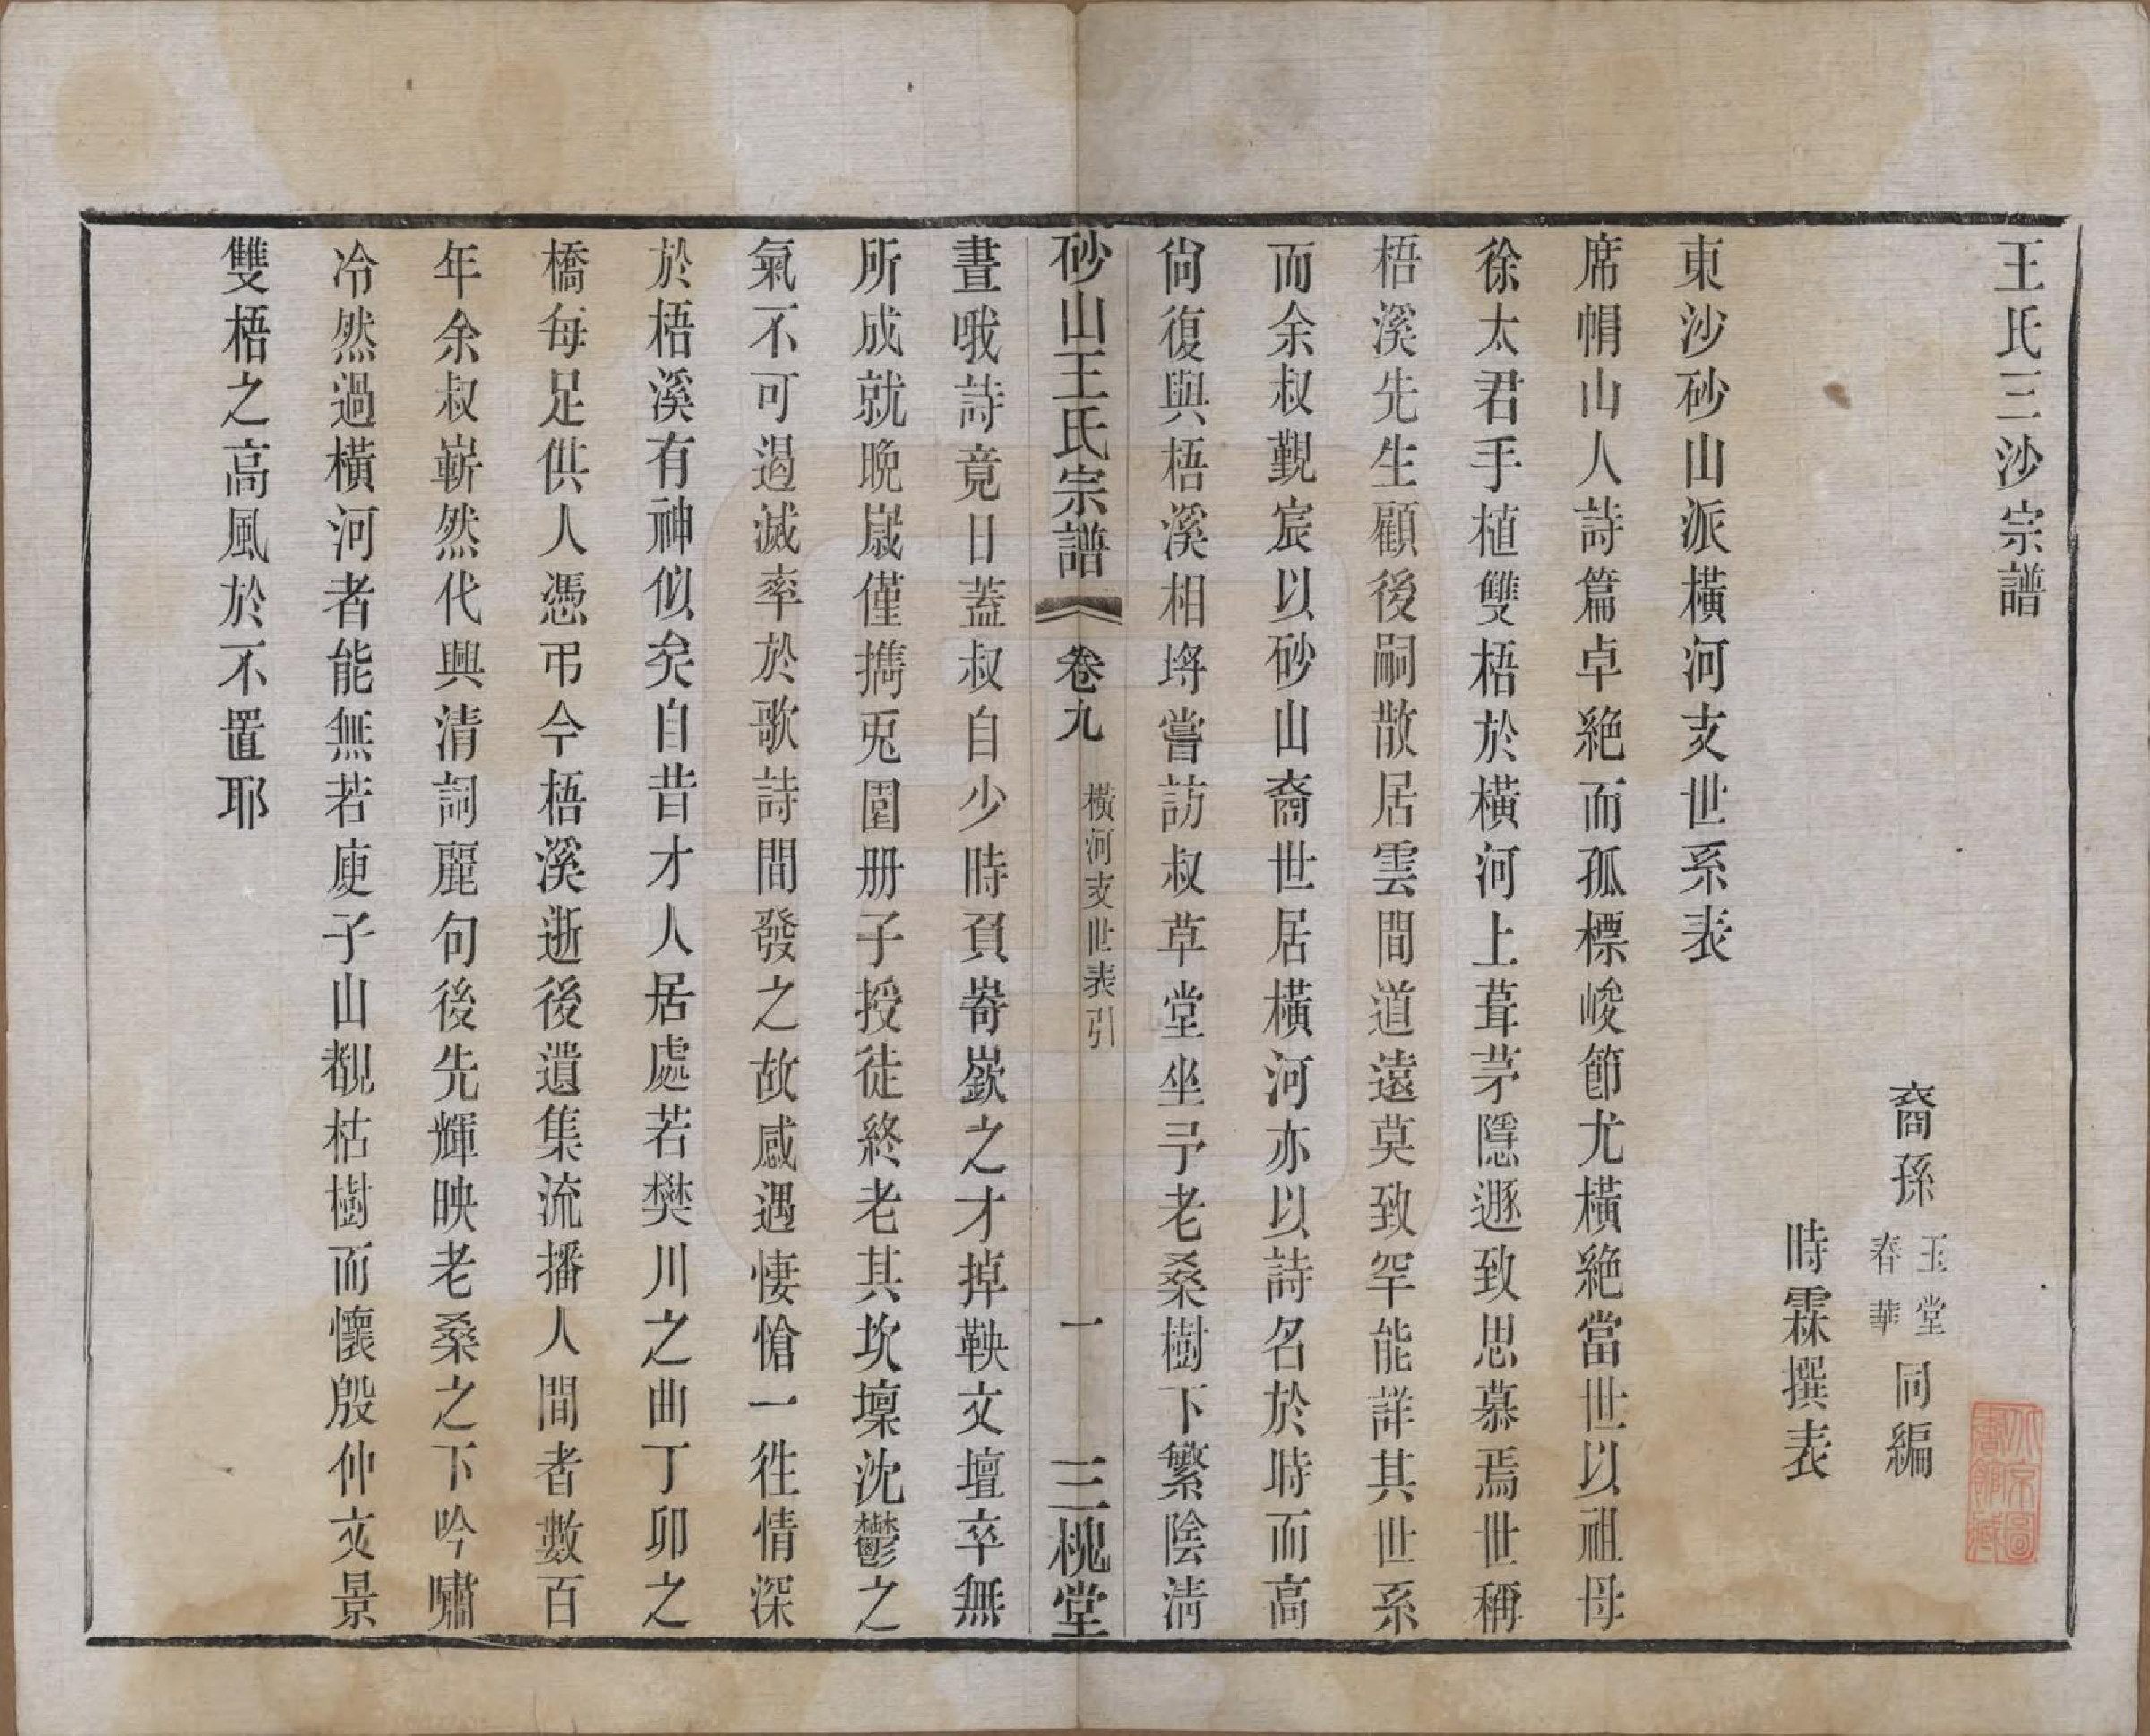 王氏三沙宗譜
裔孫
玉堂
春華
同編
時霖撰表
東沙砂山派橫河支世系表
席帽山人詩篇卓絶而孤標峻節尤橫絶當世以祖母
徐太君手植雙梧於橫河上葺茅隱遯致思慕焉世稱
梧溪先生顧後嗣散居雲間道遠莫致罕能詳其世系
而余叔覲宸以砂山裔世居橫河亦以詩名於時而高
尙復與梧溪相埒嘗訪叔草堂坐予老桑樹下繁陰淸
晝哦詩竟日蓋叔自少時負嵜嶔之才掉鞅文壇卒無
所成就晚歲僅攜兎園册子授徒終老其坎壈沈鬱之
氣不可遏滅率於歌詩間發之故感遇悽愴一徃情深
於梧溪有神似矣自昔才人居處若樊川之曲丁卯之
橋每足供人憑弔今梧溪逝後遺集流播人間者數百
年余叔嶄然代興清詞麗句後先輝映老桑之下吟嘯
冷然過橫河者能無若庾子山覩枯樹而懷殷仲文景
雙梧之高風於不置耶
砂山王氏宗譜
卷九
橫河支世表引
一
三槐堂